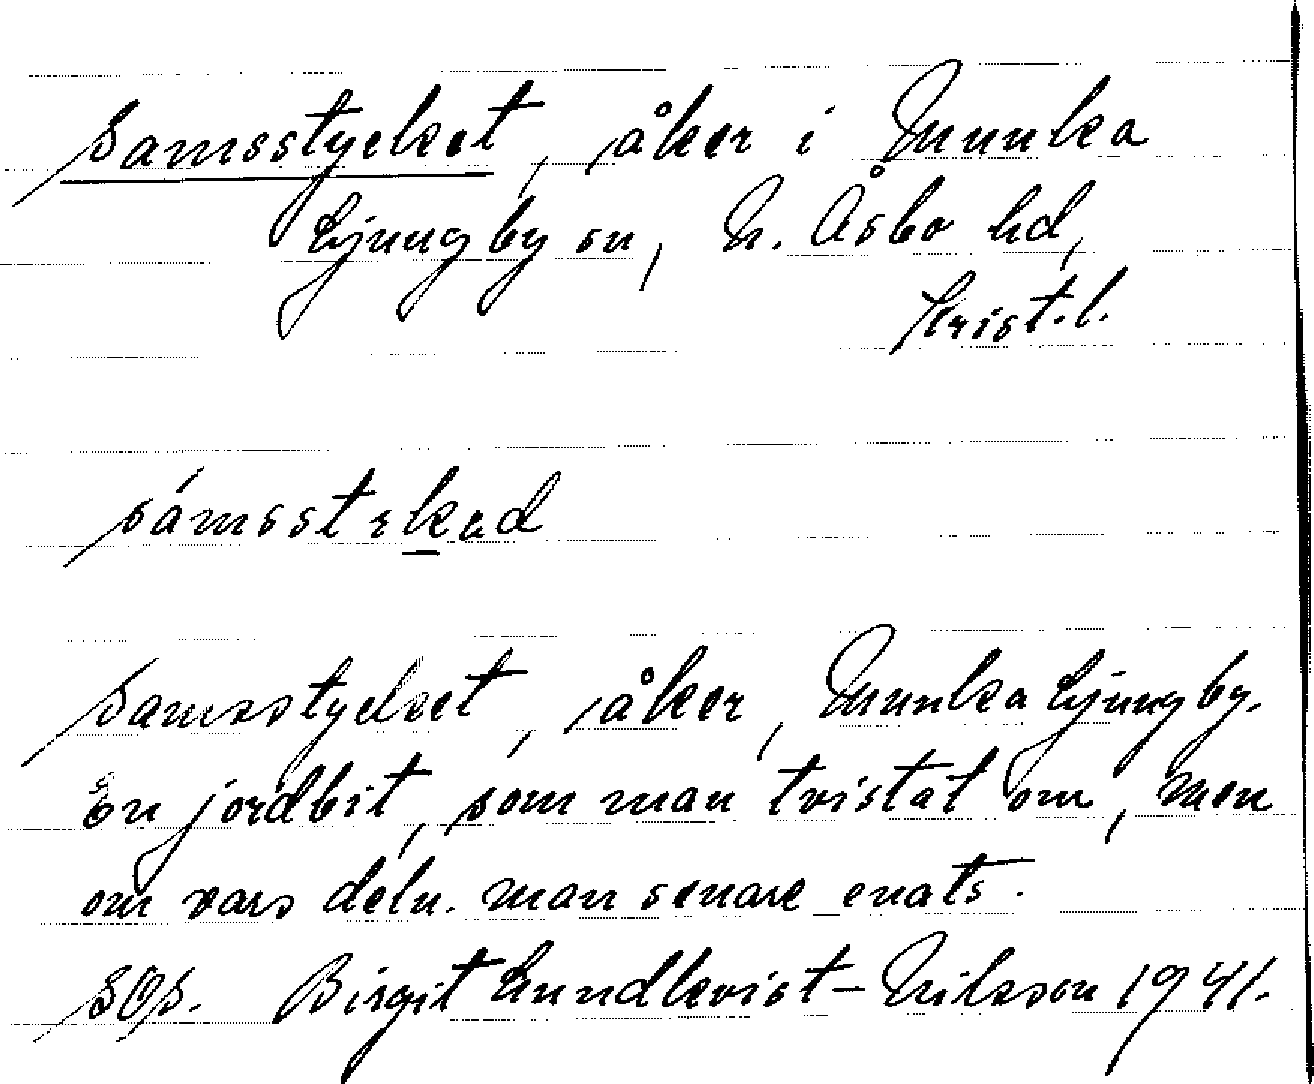 Samsstycket, åker i Munka
Ljungby sn, N. Åsbo hd,
Krist.l.
sámsstekad
Samsstycket, åker, Munka Ljungby.
En jordbit, som man tvistat om, men
om vars deln. man senare enats.
SOp. Birgit Lundkvist-Nilsson 1941.